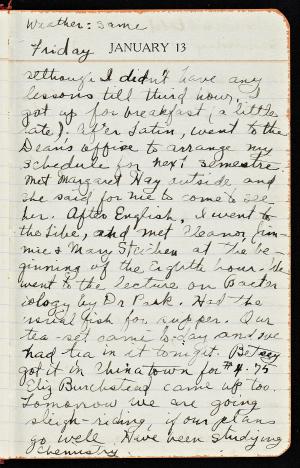 Weather: same
Friday JANUARY 13
Although I didn't have any
lessons till third hour, I
got up for breakfast (a little
late). After Latin, went to the
Deans office to arrange my
schedule for next semestre
Met Margaret Hay outside and
she said for me to come to see
her. After English, I went to
the Libe, and met Eleanor, Jim-
mie & Mary Steichen at the be-
ginning of the eighth hour. We
went to the lecture on Bacter
iology by Dr Park. Had the
usual fish for supper. Our
tea-set came today and we
had tea in it tonight. Betsey
got it in Chinatown for $4.75
Eliz Burchstead came up too.
Tomorrow we are going
sleigh-riding, if our plans
go well. Have been studying
Chemistry